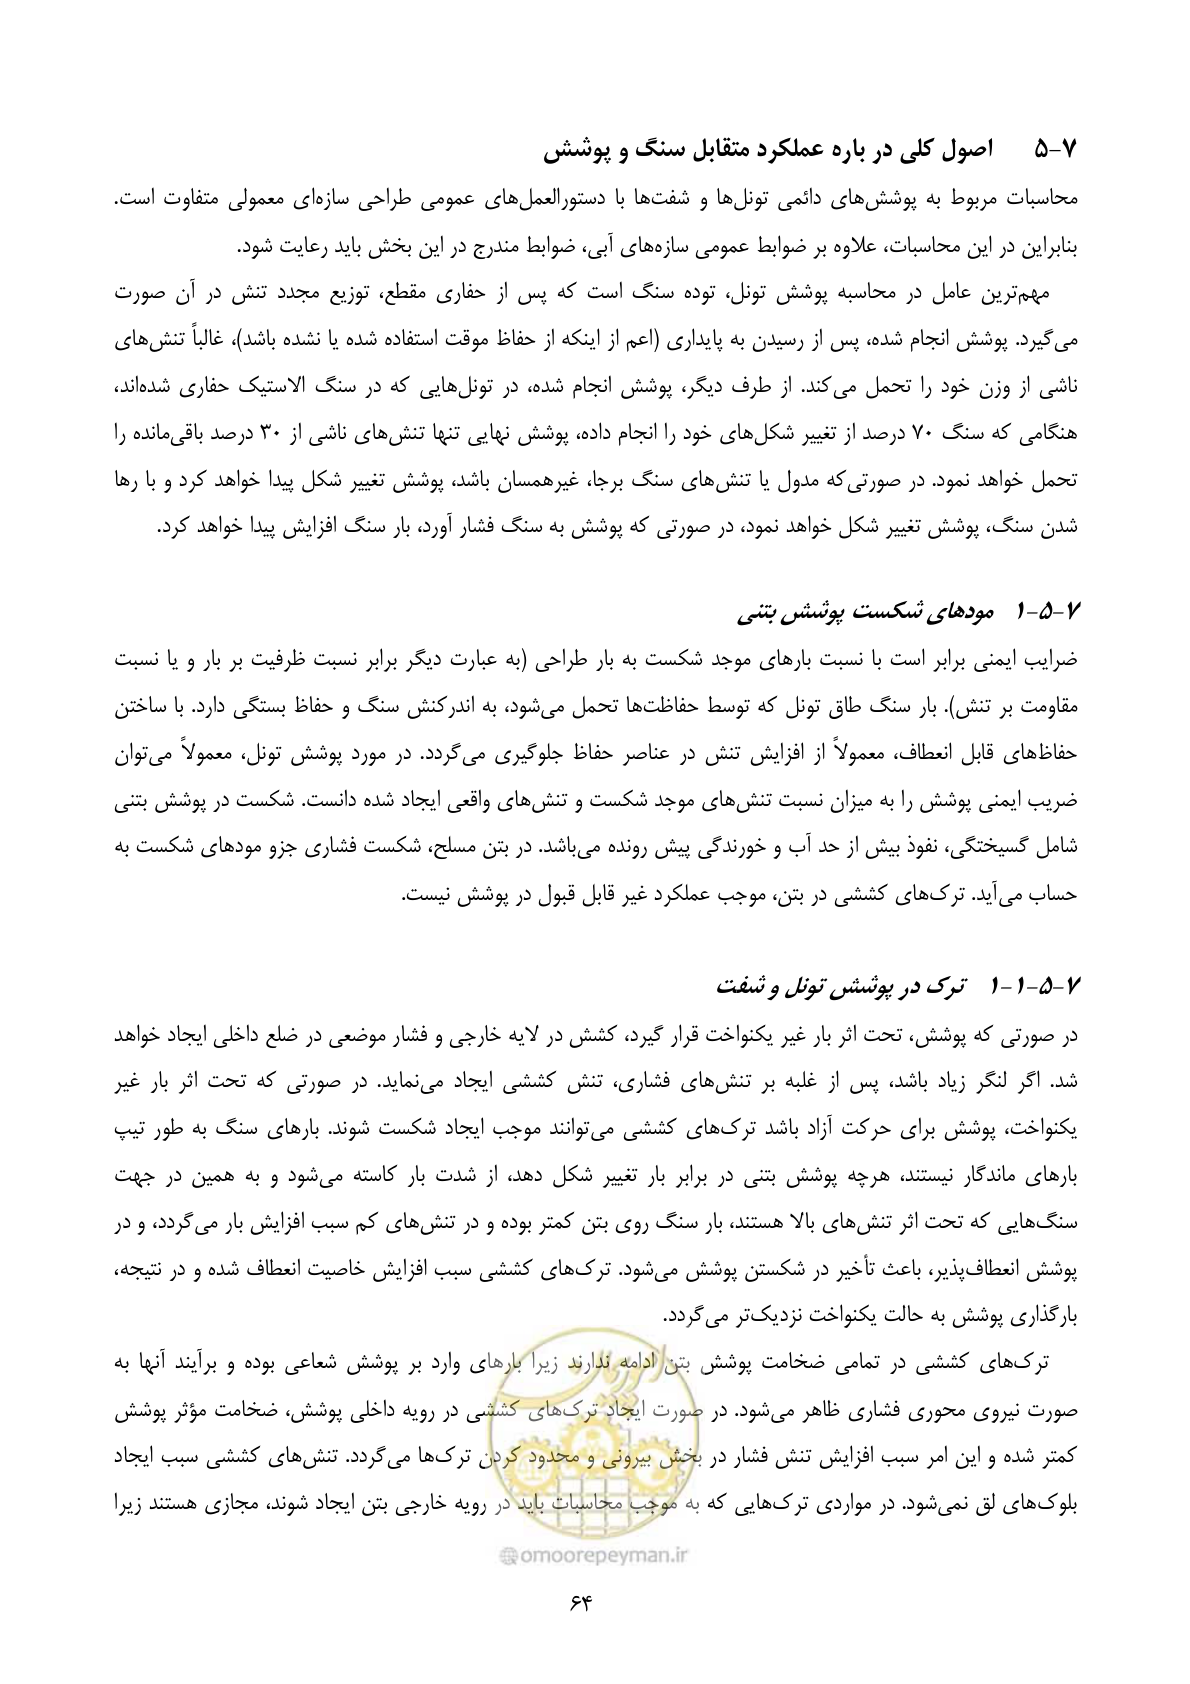 ۷-۵ اصول کلی در باره عملکرد متقابل سنگ و پوشش
محاسبات مربوط به پوشش‌های دائمی تونل‌ها و شفت‌ها با دستورالعمل‌های عمومی طراحی سازه‌ای معمولی متفاوت است.
بنابراین در این محاسبات، علاوه بر ضوابط عمومی سازه‌های آبی، ضوابط مندرج در این بخش باید رعایت شود.
مهم‌ترین عامل در محاسبه پوشش تونل، توده سنگ است که پس از حفاری مقطع، توزیع مجدد تنش در آن صورت
می‌گیرد. پوشش انجام شده، پس از رسیدن به پایداری (اعم از اینکه از حفاظ موقت استفاده شده یا نشده باشد)، غالباً تنش‌های
ناشی از وزن خود را تحمل می‌کند. از طرف دیگر، پوشش انجام شده، در تونل‌هایی که در سنگ الاستیک حفاری شده‌اند،
هنگامی که سنگ ۷۰ درصد از تغییر شکل‌های خود را انجام داده، پوشش نهایی تنها تنش‌های ناشی از ۳۰ درصد باقی‌مانده را
تحمل خواهد نمود. در صورتی‌که مدول یا تنش‌های سنگ برجا، غیرهمسان باشد، پوشش تغییر شکل پیدا خواهد کرد و با رها
شدن سنگ، پوشش تغییر شکل خواهد نمود، در صورتی که پوشش به سنگ فشار آورد، بار سنگ افزایش پیدا خواهد کرد.
۷-۵-۱ مودهای شکست پوشش بتنی
ضرایب ایمنی برابر است با نسبت بارهای موجد شکست به بار طراحی (به عبارت دیگر برابر نسبت ظرفیت بر بار و یا نسبت
مقاومت بر تنش). بار سنگ طاق تونل که توسط حفاظت‌ها تحمل می‌شود، به اندرکنش سنگ و حفاظ بستگی دارد. با ساختن
حفاظ‌های قابل انعطاف، معمولاً از افزایش تنش در عناصر حفاظ جلوگیری می‌گردد. در مورد پوشش تونل، معمولاً می‌توان
ضریب ایمنی پوشش را به میزان نسبت تنش‌های موجد شکست و تنش‌های واقعی ایجاد شده دانست. شکست در پوشش بتنی
شامل گسیختگی، نفوذ بیش از حد آب و خورندگی پیش رونده می‌باشد. در بتن مسلح، شکست فشاری جزو مودهای شکست به
حساب می‌آید. ترک‌های کششی در بتن، موجب عملکرد غیر قابل قبول در پوشش نیست.
۷-۵-۱-۱ ترک در پوشش تونل و شفت
در صورتی که پوشش، تحت اثر بار غیر یکنواخت قرار گیرد، کشش در لایه خارجی و فشار موضعی در ضلع داخلی ایجاد خواهد
شد. اگر لنگر زیاد باشد، پس از غلبه بر تنش‌های فشاری، تنش کششی ایجاد می‌نماید. در صورتی که تحت اثر بار غیر
یکنواخت، پوشش برای حرکت آزاد باشد ترک‌های کششی می‌توانند موجب ایجاد شکست شوند. بارهای سنگ به طور تیپ
بارهای ماندگار نیستند، هرچه پوشش بتنی در برابر بار تغییر شکل دهد، از شدت بار کاسته می‌شود و به همین در جهت
سنگ‌هایی که تحت اثر تنش‌های بالا هستند، بار سنگ روی بتن کمتر بوده و در تنش‌های کم سبب افزایش بار می‌گردد، و در
پوشش انعطاف‌پذیر، باعث تأخیر در شکستن پوشش می‌شود. ترک‌های کششی سبب افزایش خاصیت انعطاف شده و در نتیجه،
بارگذاری پوشش به حالت یکنواخت نزدیک‌تر می‌گردد.
ترک‌های کششی در تمامی ضخامت پوشش بتن ادامه ندارند زیرا بارهای وارد بر پوشش شعاعی بوده و برآیند آنها به
صورت نیروی محوری فشاری ظاهر می‌شود. در صورت ایجاد ترک‌های کششی در رویه داخلی پوشش، ضخامت مؤثر پوشش
کمتر شده و این امر سبب افزایش تنش فشار در بخش بیرونی و محدود کردن ترک‌ها می‌گردد. تنش‌های کششی سبب ایجاد
بلوک‌های لق نمی‌شود. در مواردی ترک‌هایی که به موجب محاسبات باید در رویه خارجی بتن ایجاد شوند، مجازی هستند زیرا
امور پیمان
@omoorepeyman.ir
۶۴